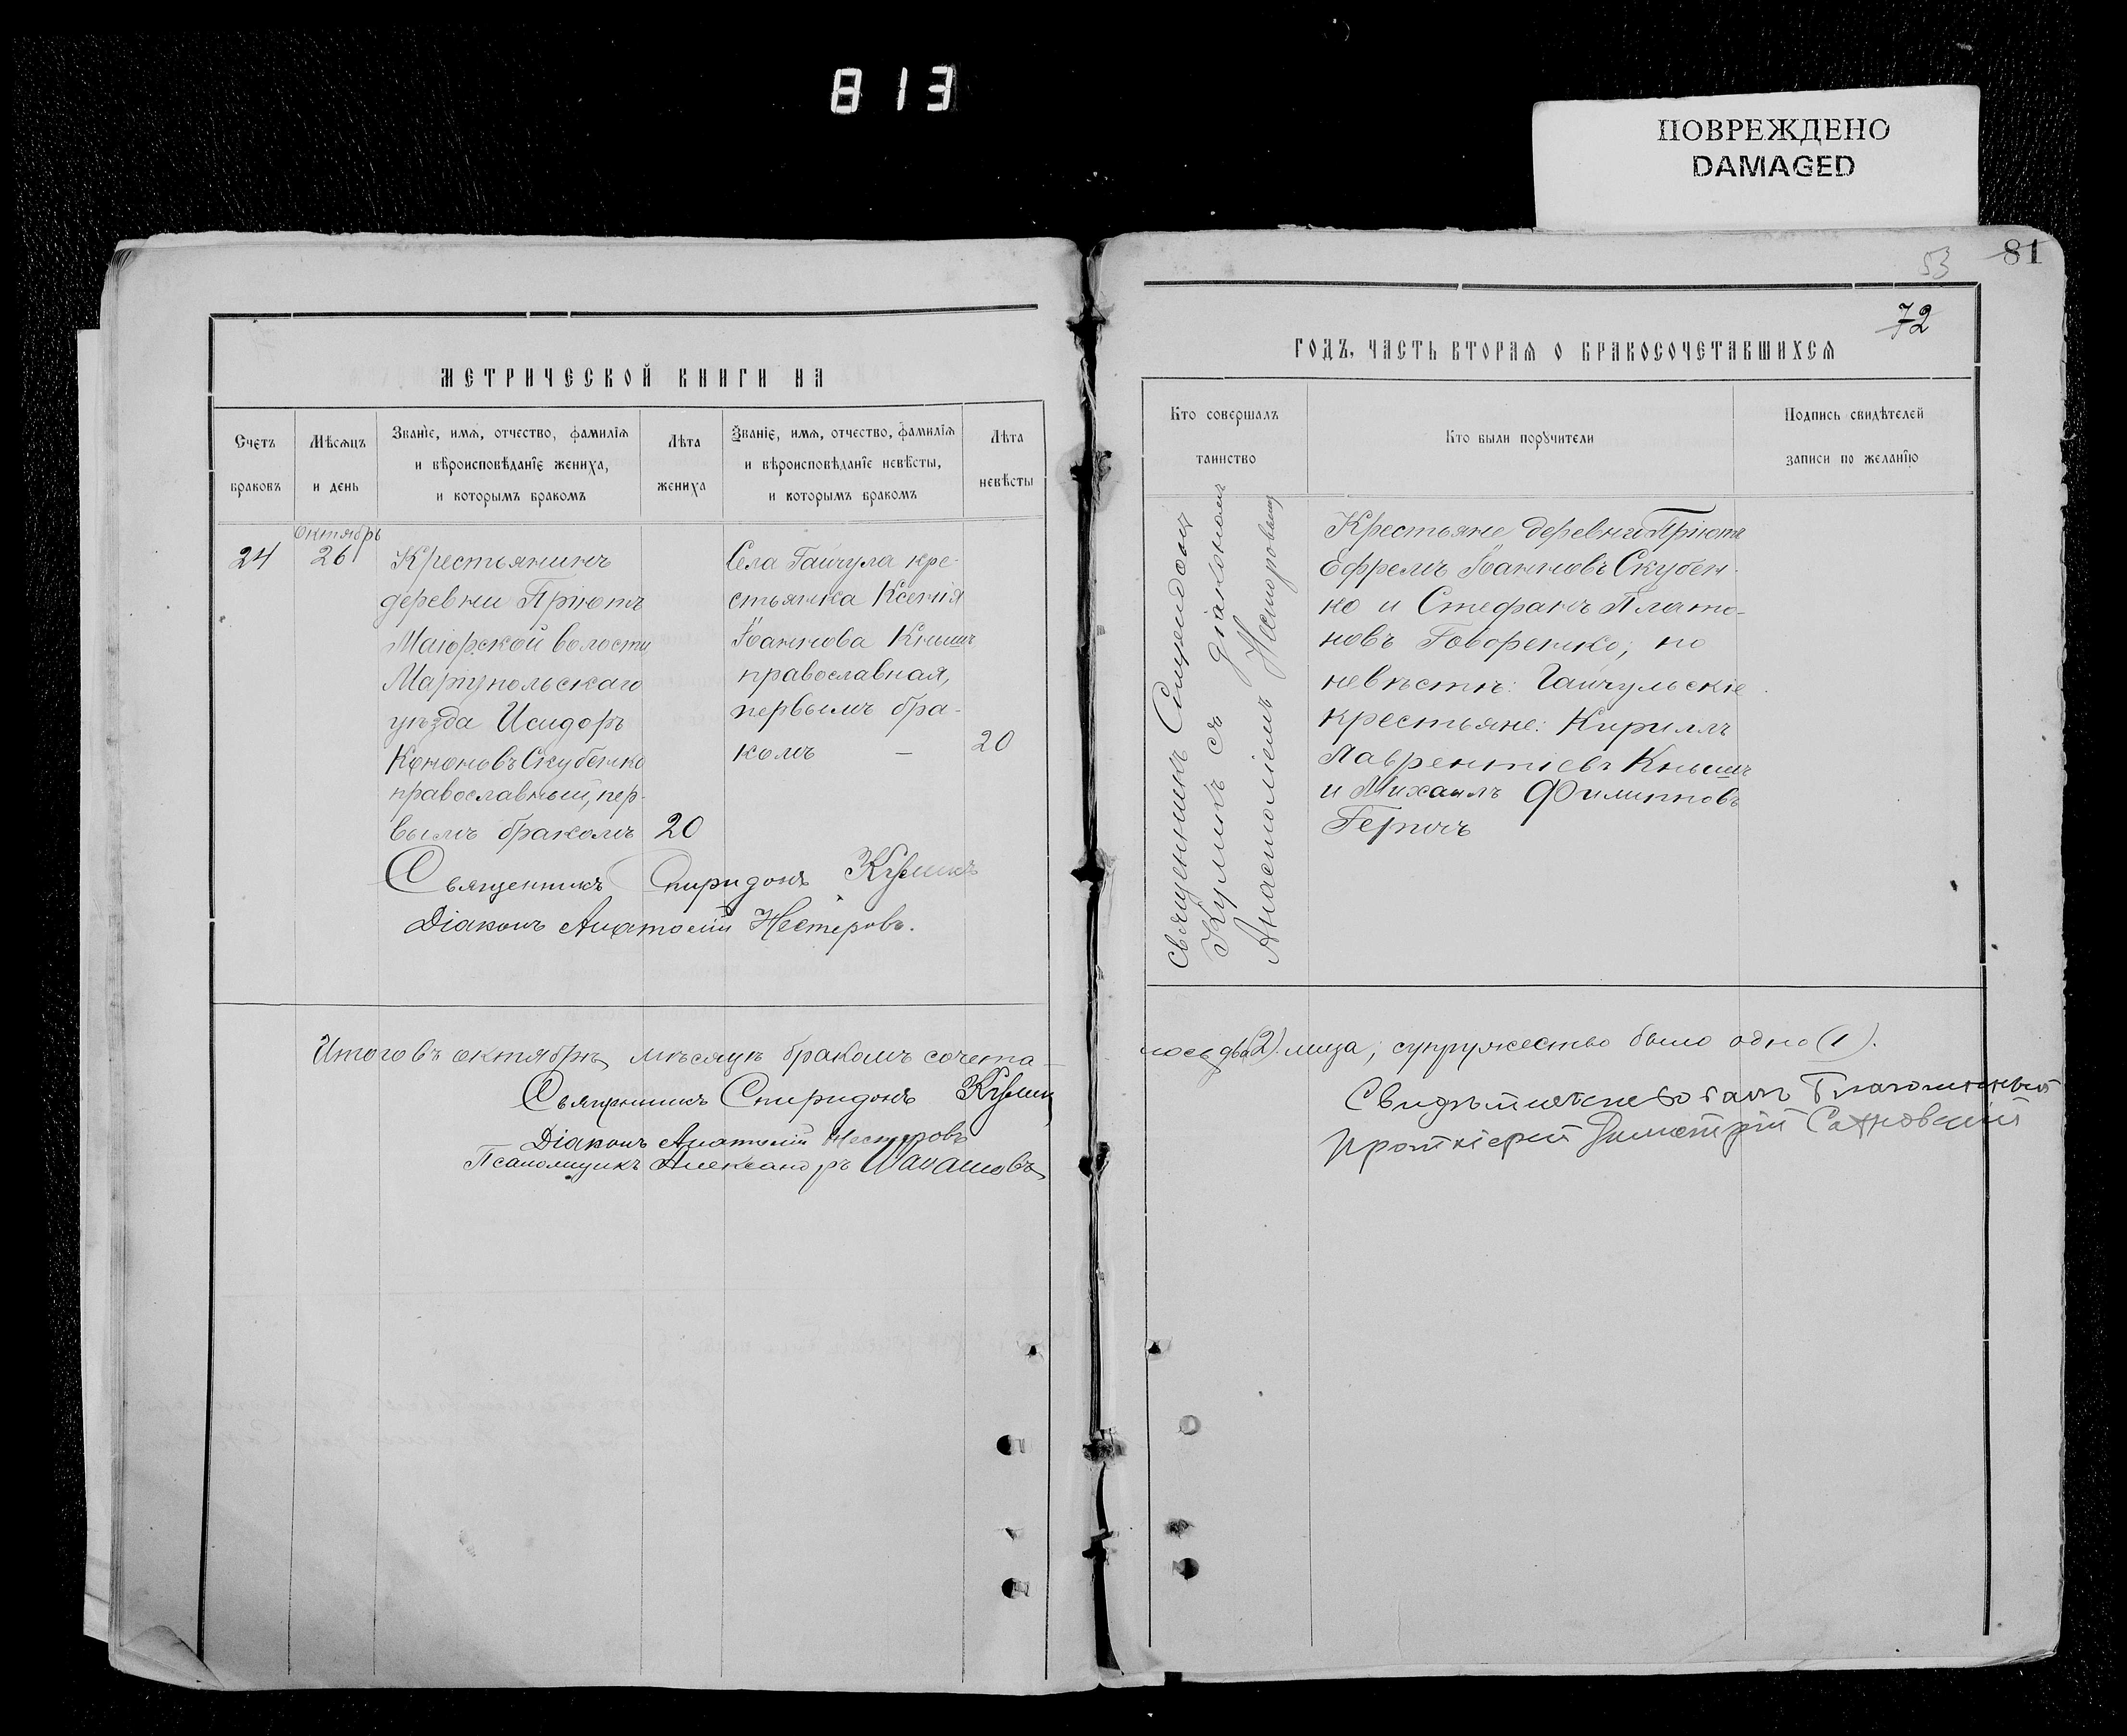 813
ПОВРЕЖДЕНО
DAMAGED
53
81
72
МЕТРИЧЕСКОЙ КНИГИ НА
Счетъ браковъ
Мѣсяцъ и день
Званіе, имя, отчество, фамилія
и вѣроисповѣданіе жениха,
и которымъ бракомъ
Лѣта жениха
Званіе, имя, отчество, фамилія
и вѣроисповѣданіе невѣсты,
и которымъ бракомъ
Лѣта невѣсты
Октябрь
24
26
Крестьянинъ
деревни Пріютъ
Маіорской волости
Маріупольскаго
уѣзда Исидоръ
Кононовъ Скубенко
православный, пер-
вымъ бракомъ
20
Села Гайчула кре-
стьянка Ксенія
Іоаннова Кнышъ
православная,
первымъ бра-
комъ –
20
Священникъ Спиридонъ Куликъ
Діаконъ Анатолій Нестеровъ.
Итого въ октябрѣ мѣсяцѣ бракомъ сочета
Священникъ Спиридонъ
Діаконъ Анатолій Нестеровъ
Псаломщикъ Александръ
ГОДЪ, ЧАСТЬ ВТОРАЯ О БРАКОСОЧЕТАВШИХСЯ
Кто совершалъ
таинство
Кто были поручители
Подпись свидѣтелей
записи по желанію
Священникъ Спиридонъ
Куликъ съ діакономъ
Анатоліемъ Нестеровымъ
Крестьяне деревни Пріюта
Ефремъ Іоанновъ Скубен-
ко и Стефанъ Плато-
новъ Говоренко; по
невѣстѣ: Гайчульскіе
крестьяне: Кириллъ
Лаврентіевъ Кнышъ
и Михаилъ Филипповъ
лось два (2) лица; супружество было одно (1).
Свидѣтельствовалъ Благочинный
Протоіерей Димитрій